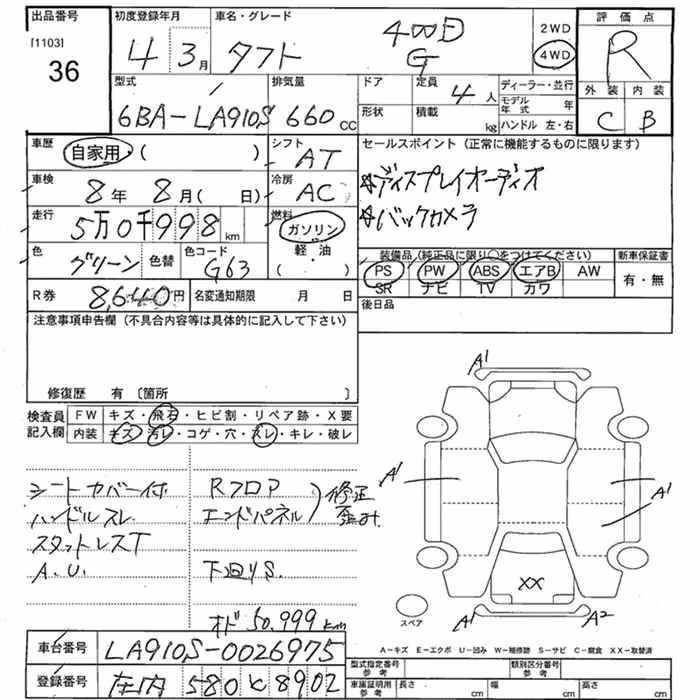 出品番号 初度登録年月 車名・グレード 2WD 評価点
[1103] 4 3月 タフト 4WD 4WD R
36 G
型式 排気量 ドア 定員 4人 ディーラー・並行 外装 内装
6BA-LA910S 660cc 形状 積載 kg モデル年式 年 C B
ハンドル 左・右
車歴 自家用 ( ) シフト AT セールスポイント (正常に機能するものに限ります)
車検 8年 8月( 日) 冷房 AC ☆ディスプレイオーディオ
走行 5万0千998km 燃料 ガソリン ☆バックカメラ
軽油
( )
色 グリーン 色替 色コード G63 装備品 (純正品に限り○をつけてください) 新車保証書
PS PW ABS エアB AW 有・無
SR ナビ TV カワ
R券 8,640円 名変通知期限 月 日 後日品
注意事項申告欄 (不具合内容等は具体的に記入して下さい)
修復歴 有 〔箇所 〕
検査員 FW キズ・飛石・ヒビ割・リペア跡・X要
記入欄 内装 キズ・汚レ・コゲ・穴・スレ・キレ・破レ
シートカバー付 Rフロア
ハンドルスレ エンドパネル ) 修正歪ミ
スタットレスT
A.U. 下廻りS.
オド 50.999km
A1
A1 A1
XX
A1 A2
スペア
A-キズ E-エクボ U-凹み W-補修跡 S-サビ C-腐食 XX-取替済
車台番号 LA910S-0026975 型式指定番号 参考 類別区分番号 参考
登録番号 庄内 580 と 8902 車庫証明用 参考 長さ cm 幅 cm 高さ cm